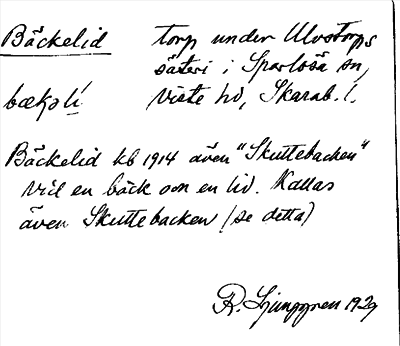 Bäckelid torp under Ulvstorps
säteri i Sparlösa sn,
bækəlí Viste hd, Skarab. l.
Bäckelid kb 1914 även "Skuttebacken"
vid en bäck och en lid. Kallas
även Skuttebacken (se detta)
R. Ljunggren 1929